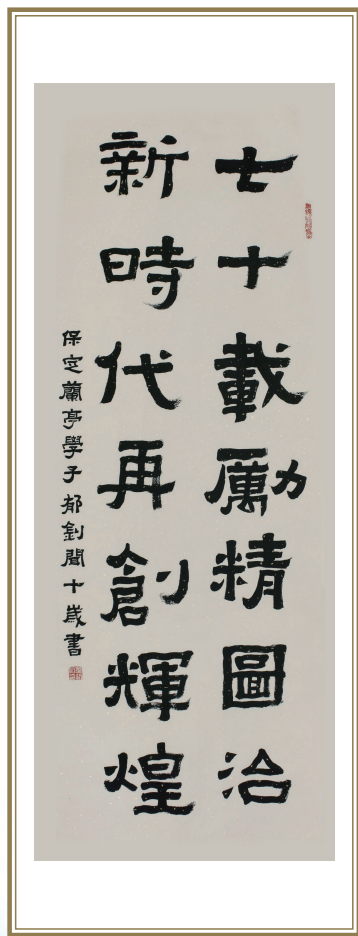 七十載勵精圖治
新時代再創輝煌
保定蘭亭學子郁釗聞十歲書